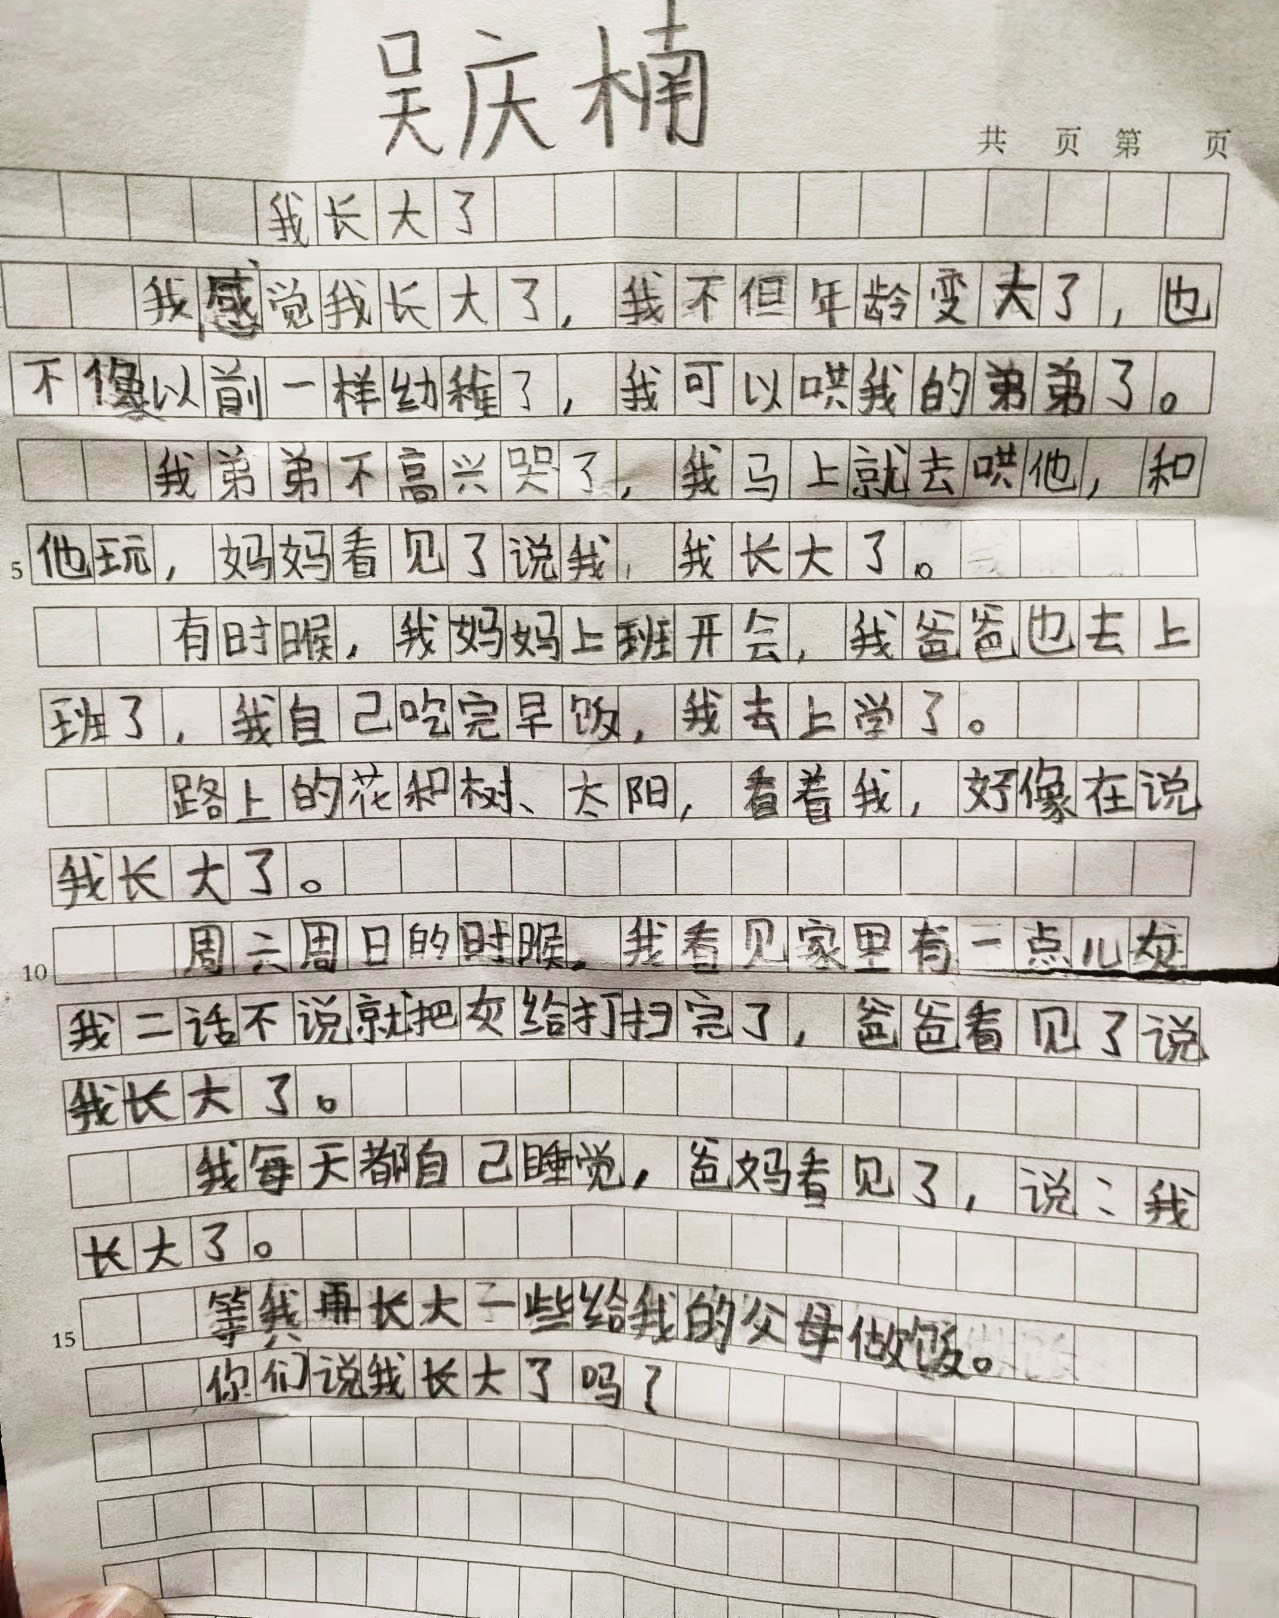 吴庆楠
共 页 第 页
我长大了
我感觉我长大了，我不但年龄变大了，也
不像以前一样幼稚了，我可以哄我的弟弟了。
我弟弟不高兴哭了，我马上就去哄他，和
5 他玩，妈妈看见了说我，我长大了。
有时候，我妈妈上班开会，我爸爸也去上
班了，我自己吃完早饭，我去上学了。
路上的花和树、太阳，看着我，好像在说
我长大了。
10 周六周日的时候，我看见家里有一点儿灰
我二话不说就把灰给打扫完了，爸爸看见了说
我长大了。
我每天都自己睡觉，爸妈看见了，说：我
长大了。
15 等我再长大一些给我的父母做饭。
你们说我长大了吗？